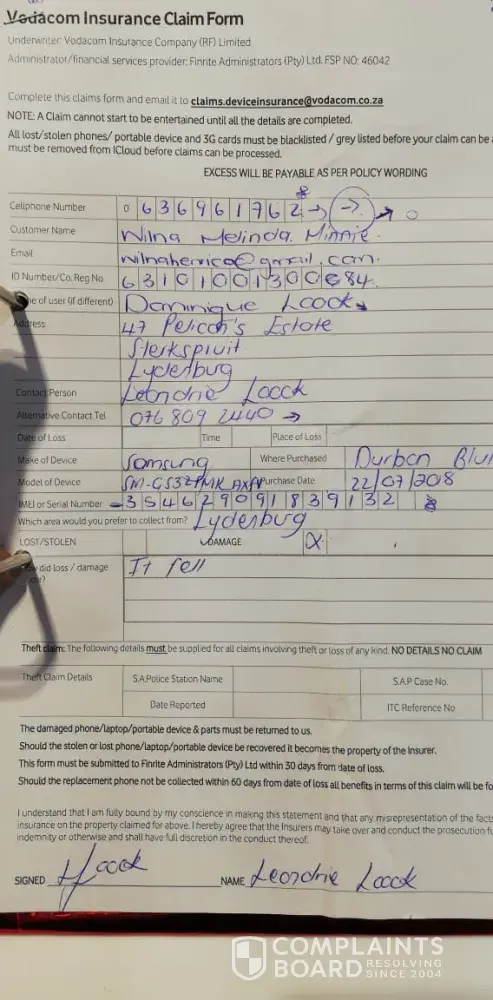 Vodacom Insurance Claim Form
Underwriter: Vodacom Insurance Company (RF) Limited
Administrator/financial services provider: Finrite Administrators (Pty) Ltd. FSP NO: 46042
Complete this claims form and email it to claims.deviceinsurance@vodacom.co.za
NOTE: A Claim cannot start to be entertained until all the details are completed.
All lost/stolen phones/ portable device and 3G cards must be blacklisted / grey listed before your claim can be
must be removed from ICloud before claims can be processed.
EXCESS WILL BE PAYABLE AS PER POLICY WORDING
Cellphone Number 0 636961762
Customer Name Wilna Melinda. Minnie.
Email wilnaherrica@gmail.com.
ID Number/Co. Reg No 6310100130084
of user (if different) Dominique Loock
Address 47 Pelican's Estate
Sterkspruit
Lydenburg
Contact Person Leondrie Loock
Alternative Contact Tel 076 809 2440
Date of Loss Time Place of Loss
Make of Device Samsung Where Purchased Durban
Model of Device Purchase Date 22/07/2018
IMEI or Serial Number 354629091839132
Which area would you prefer to collect from? Lydenburg
LOST/STOLEN DAMAGE X
did loss / damage It fell
Theft claim: The following details must be supplied for all claims involving theft or loss of any kind. NO DETAILS NO CLAIM
Theft Claim Details S.A.Police Station Name S.A.P Case No.
Date Reported ITC Reference No
The damaged phone/laptop/portable device & parts must be returned to us.
Should the stolen or lost phone/laptop/portable device be recovered it becomes the property of the Insurer.
This form must be submitted to Finrite Administrators (Pty) Ltd within 30 days from date of loss.
Should the replacement phone not be collected within 60 days from date of loss all benefits in terms of this claim will be
I understand that I am fully bound by my conscience in making this statement and that any misrepresentation of the facts
insurance on the property claimed for above. I hereby agree that the Insurers may take over and conduct the prosecution
indemnity or otherwise and shall have full discretion in the conduct thereof.
SIGNED Loock NAME Leondrie Loock
COMPLAINTS
BOARD RESOLVING SINCE 2004